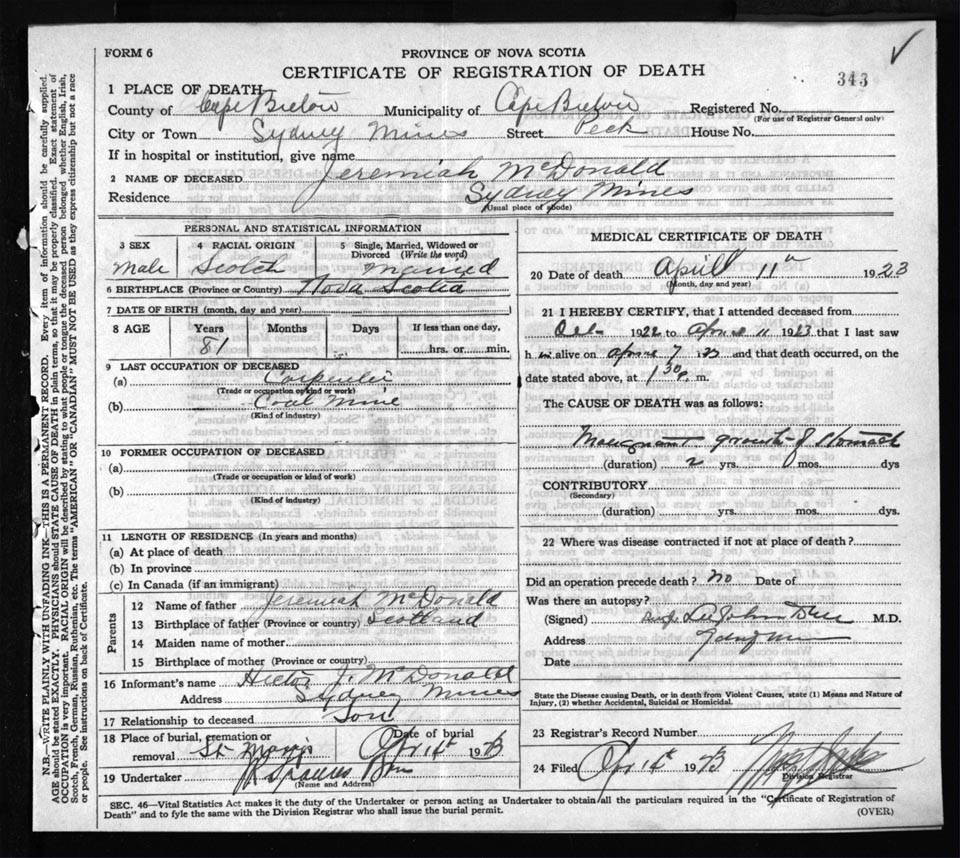 FORM 6
PROVINCE OF NOVA SCOTIA
CERTIFICATE OF REGISTRATION OF DEATH
343
1 PLACE OF DEATH
County of Cape Breton Municipality of Cape Breton Registered No.
(For use of Registrar General only)
City or Town Sydney Mines Street Peck House No.
If in hospital or institution, give name
2 NAME OF DECEASED Jeremiah McDonald
Residence Sydney Mines
(Usual place of abode)
PERSONAL AND STATISTICAL INFORMATION
3 SEX 4 RACIAL ORIGIN 5 Single, Married, Widowed or Divorced (Write the word)
Male Scotch Married
6 BIRTHPLACE (Province or Country) Nova Scotia
7 DATE OF BIRTH (month, day and year)
8 AGE Years Months Days If less than one day,
81 hrs. or min.
9 LAST OCCUPATION OF DECEASED
(a) Carpenter
(Trade or occupation or kind of work)
(b) Coal Mine
(Kind of industry)
10 FORMER OCCUPATION OF DECEASED
(a)
(Trade or occupation or kind of work)
(b)
(Kind of industry)
11 LENGTH OF RESIDENCE (In years and months)
(a) At place of death
(b) In province
(c) In Canada (if an immigrant)
Parents
12 Name of father Jeremiah McDonald
13 Birthplace of father (Province or country) Scotland
14 Maiden name of mother
15 Birthplace of mother (Province or country)
16 Informant's name Hector J. McDonald
Address Sydney Mines
17 Relationship to deceased Son
18 Place of burial, cremation or Date of burial
removal St Marys Apr 14th 1923
19 Undertaker Bros
(Name and Address)
MEDICAL CERTIFICATE OF DEATH
20 Date of death April 11th 1923
(Month, day and year)
21 I HEREBY CERTIFY, that I attended deceased from
1922 to April 11 1923 that I last saw
him alive on April 7 1923 and that death occurred, on the
date stated above, at 1 30 p. m.
The CAUSE OF DEATH was as follows:
Malignant growth of stomach
(duration) 2 yrs. mos. dys
CONTRIBUTORY
(Secondary)
(duration) yrs. mos. dys.
22 Where was disease contracted if not at place of death?
Did an operation precede death? No Date of
Was there an autopsy?
(Signed) M.D.
Address
Date
State the Disease causing Death, or in death from Violent Causes, state (1) Means and Nature of
Injury, (2) whether Accidental, Suicidal or Homicidal.
23 Registrar's Record Number
24 Filed Apr 14th 1923
Division Registrar
SEC. 46—Vital Statistics Act makes it the duty of the Undertaker or person acting as Undertaker to obtain all the particulars required in the "Certificate of Registration of
Death" and to fyle the same with the Division Registrar who shall issue the burial permit.
(OVER)
N.B.—WRITE PLAINLY WITH UNFADING INK—THIS IS A PERMANENT RECORD. Every item of information should be carefully supplied.
AGE should be stated EXACTLY. PHYSICIANS should STATE CAUSE OF DEATH in plain terms, so that it may be properly classified. Exact statement of
OCCUPATION is very important. RACIAL ORIGIN will be described by stating to what people or tongue the deceased person belonged whether English, Irish,
Scotch, French, German, Russian, Ruthenian, etc. The terms "AMERICAN" OR "CANADIAN" MUST NOT BE USED as they express citizenship but not a race
or people. See instructions on back of Certificate.